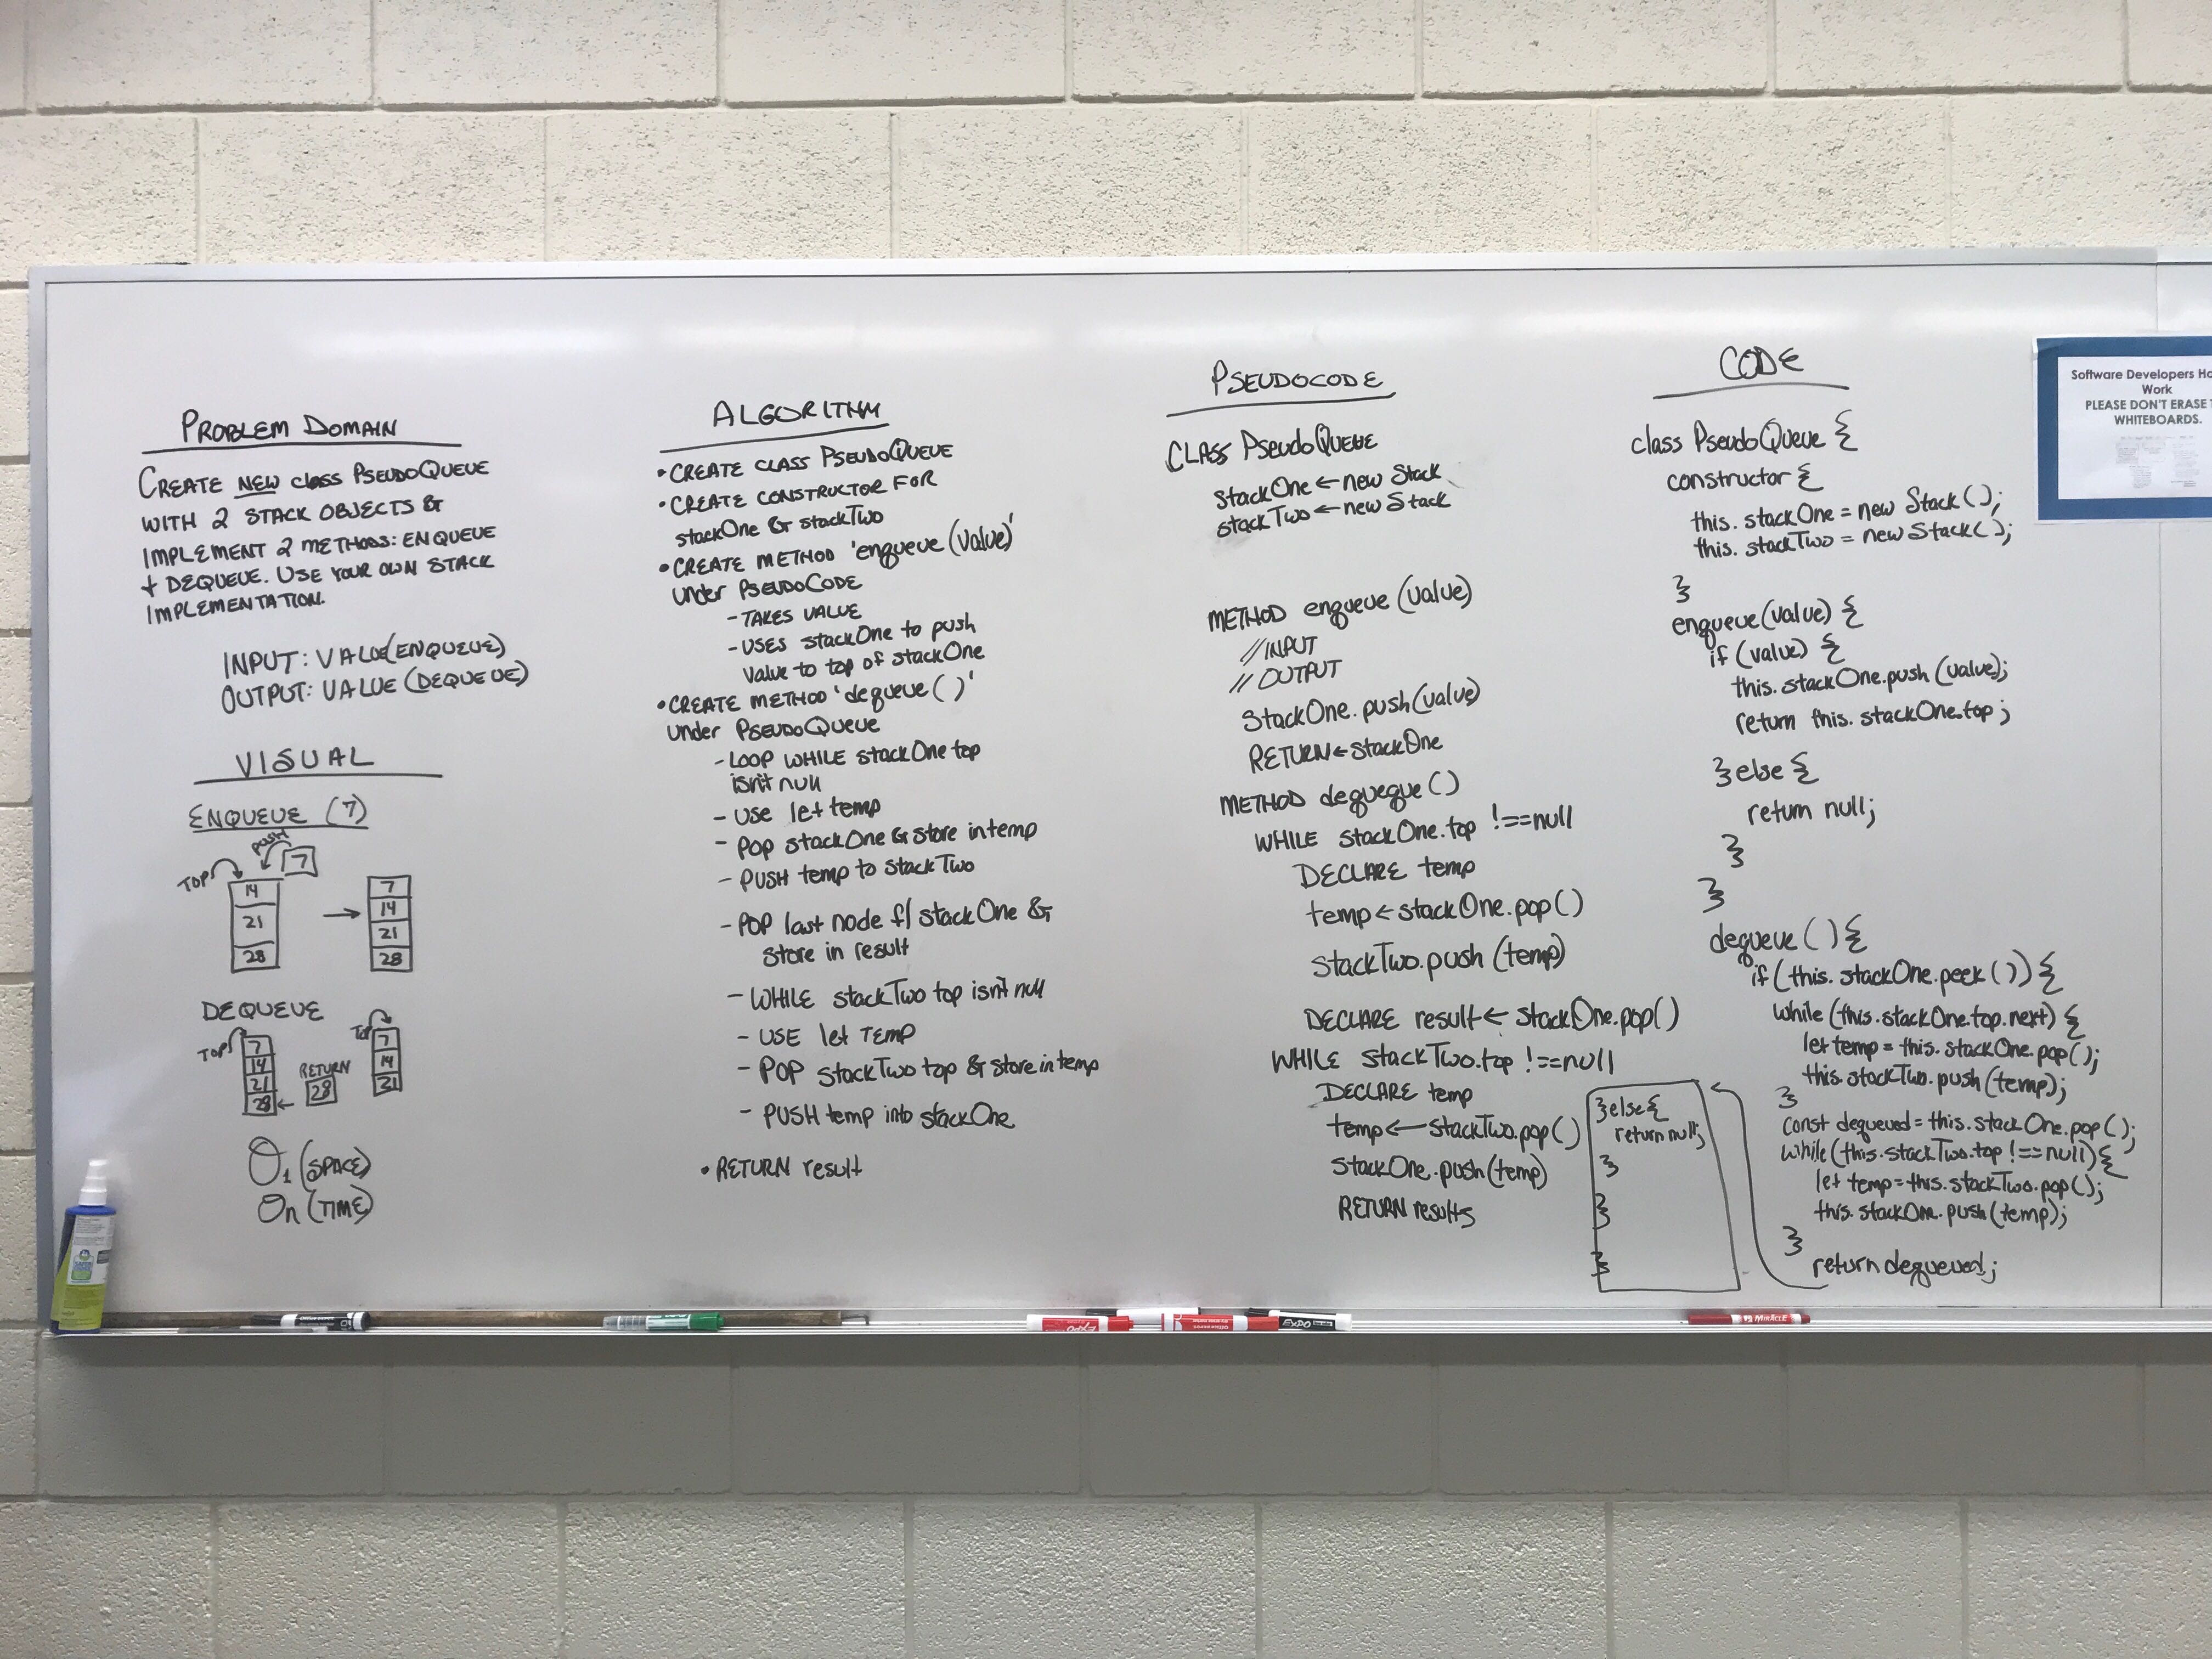 PROBLEM DOMAIN
CREATE NEW class PSEUDOQUEUE
WITH 2 STACK OBJECTS &
IMPLEMENT 2 METHODS: ENQUEUE
+ DEQUEUE. USE YOUR OWN STACK
IMPLEMENTATION.
INPUT: VALUE(ENQUEUE)
OUTPUT: VALUE (DEQUEUE)
VISUAL
ENQUEUE (7)
PUSH
7
TOP
14
21
28
7
14
21
28
DEQUEUE
TOP
7
14
21
28
RETURN
28
TOP
7
14
21
O1 (SPACE)
On (TIME)
ALGORITHM
• CREATE CLASS PSEUDOQUEUE
• CREATE CONSTRUCTOR FOR
stackOne & stackTwo
• CREATE METHOD 'enqueue (value)'
under PSEUDOCODE
- TAKES VALUE
- USES stackOne to push
value to top of stackOne
• CREATE METHOD 'dequeue ( )'
under PSEUDOQUEUE
- LOOP WHILE stackOne top
isn't null
- USE let temp
- POP stackOne & store in temp
- PUSH temp to stackTwo
- POP last node f/ stackOne &
store in result
- WHILE stackTwo top isn't null
- USE let TEMP
- POP stackTwo top & store in temp
- PUSH temp into stackOne
• RETURN result
PSEUDOCODE
CLASS PSEUDOQUEUE
StackOne ← new Stack
stackTwo ← new Stack
METHOD enqueue (value)
// INPUT
// OUTPUT
StackOne.push(value)
RETURN ← stackOne
METHOD dequeque ()
WHILE stackOne.top !==null
DECLARE temp
temp ← stackOne.pop()
stackTwo.push (temp)
DECLARE result ← stackOne.pop()
WHILE stackTwo.top !==null
DECLARE temp
temp ← stackTwo.pop()
stackOne.push(temp)
RETURN results
CODE
class PseudoQueue {
constructor {
this.stackOne = new Stack();
this.stackTwo = new Stack();
}
enqueue(value) {
if (value) {
this.stackOne.push (value);
return this.stackOne.top;
} else {
return null;
}
}
dequeue () {
if (this.stackOne.peek ()) {
while (this.stackOne.top.next) {
let temp = this.stackOne.pop();
this.stackTwo.push (temp);
}
const dequeued = this.stackOne.pop();
while (this.stackTwo.top !== null) {
let temp = this.stackTwo.pop();
this.stackOne.push (temp);
}
return dequeued;
} else {
return null;
}
}
}
Software Developers
Work
PLEASE DON'T ERASE
WHITEBOARDS.
Office DEPOT
EXPO
Office DEPOT
EXPO
MIRACLE